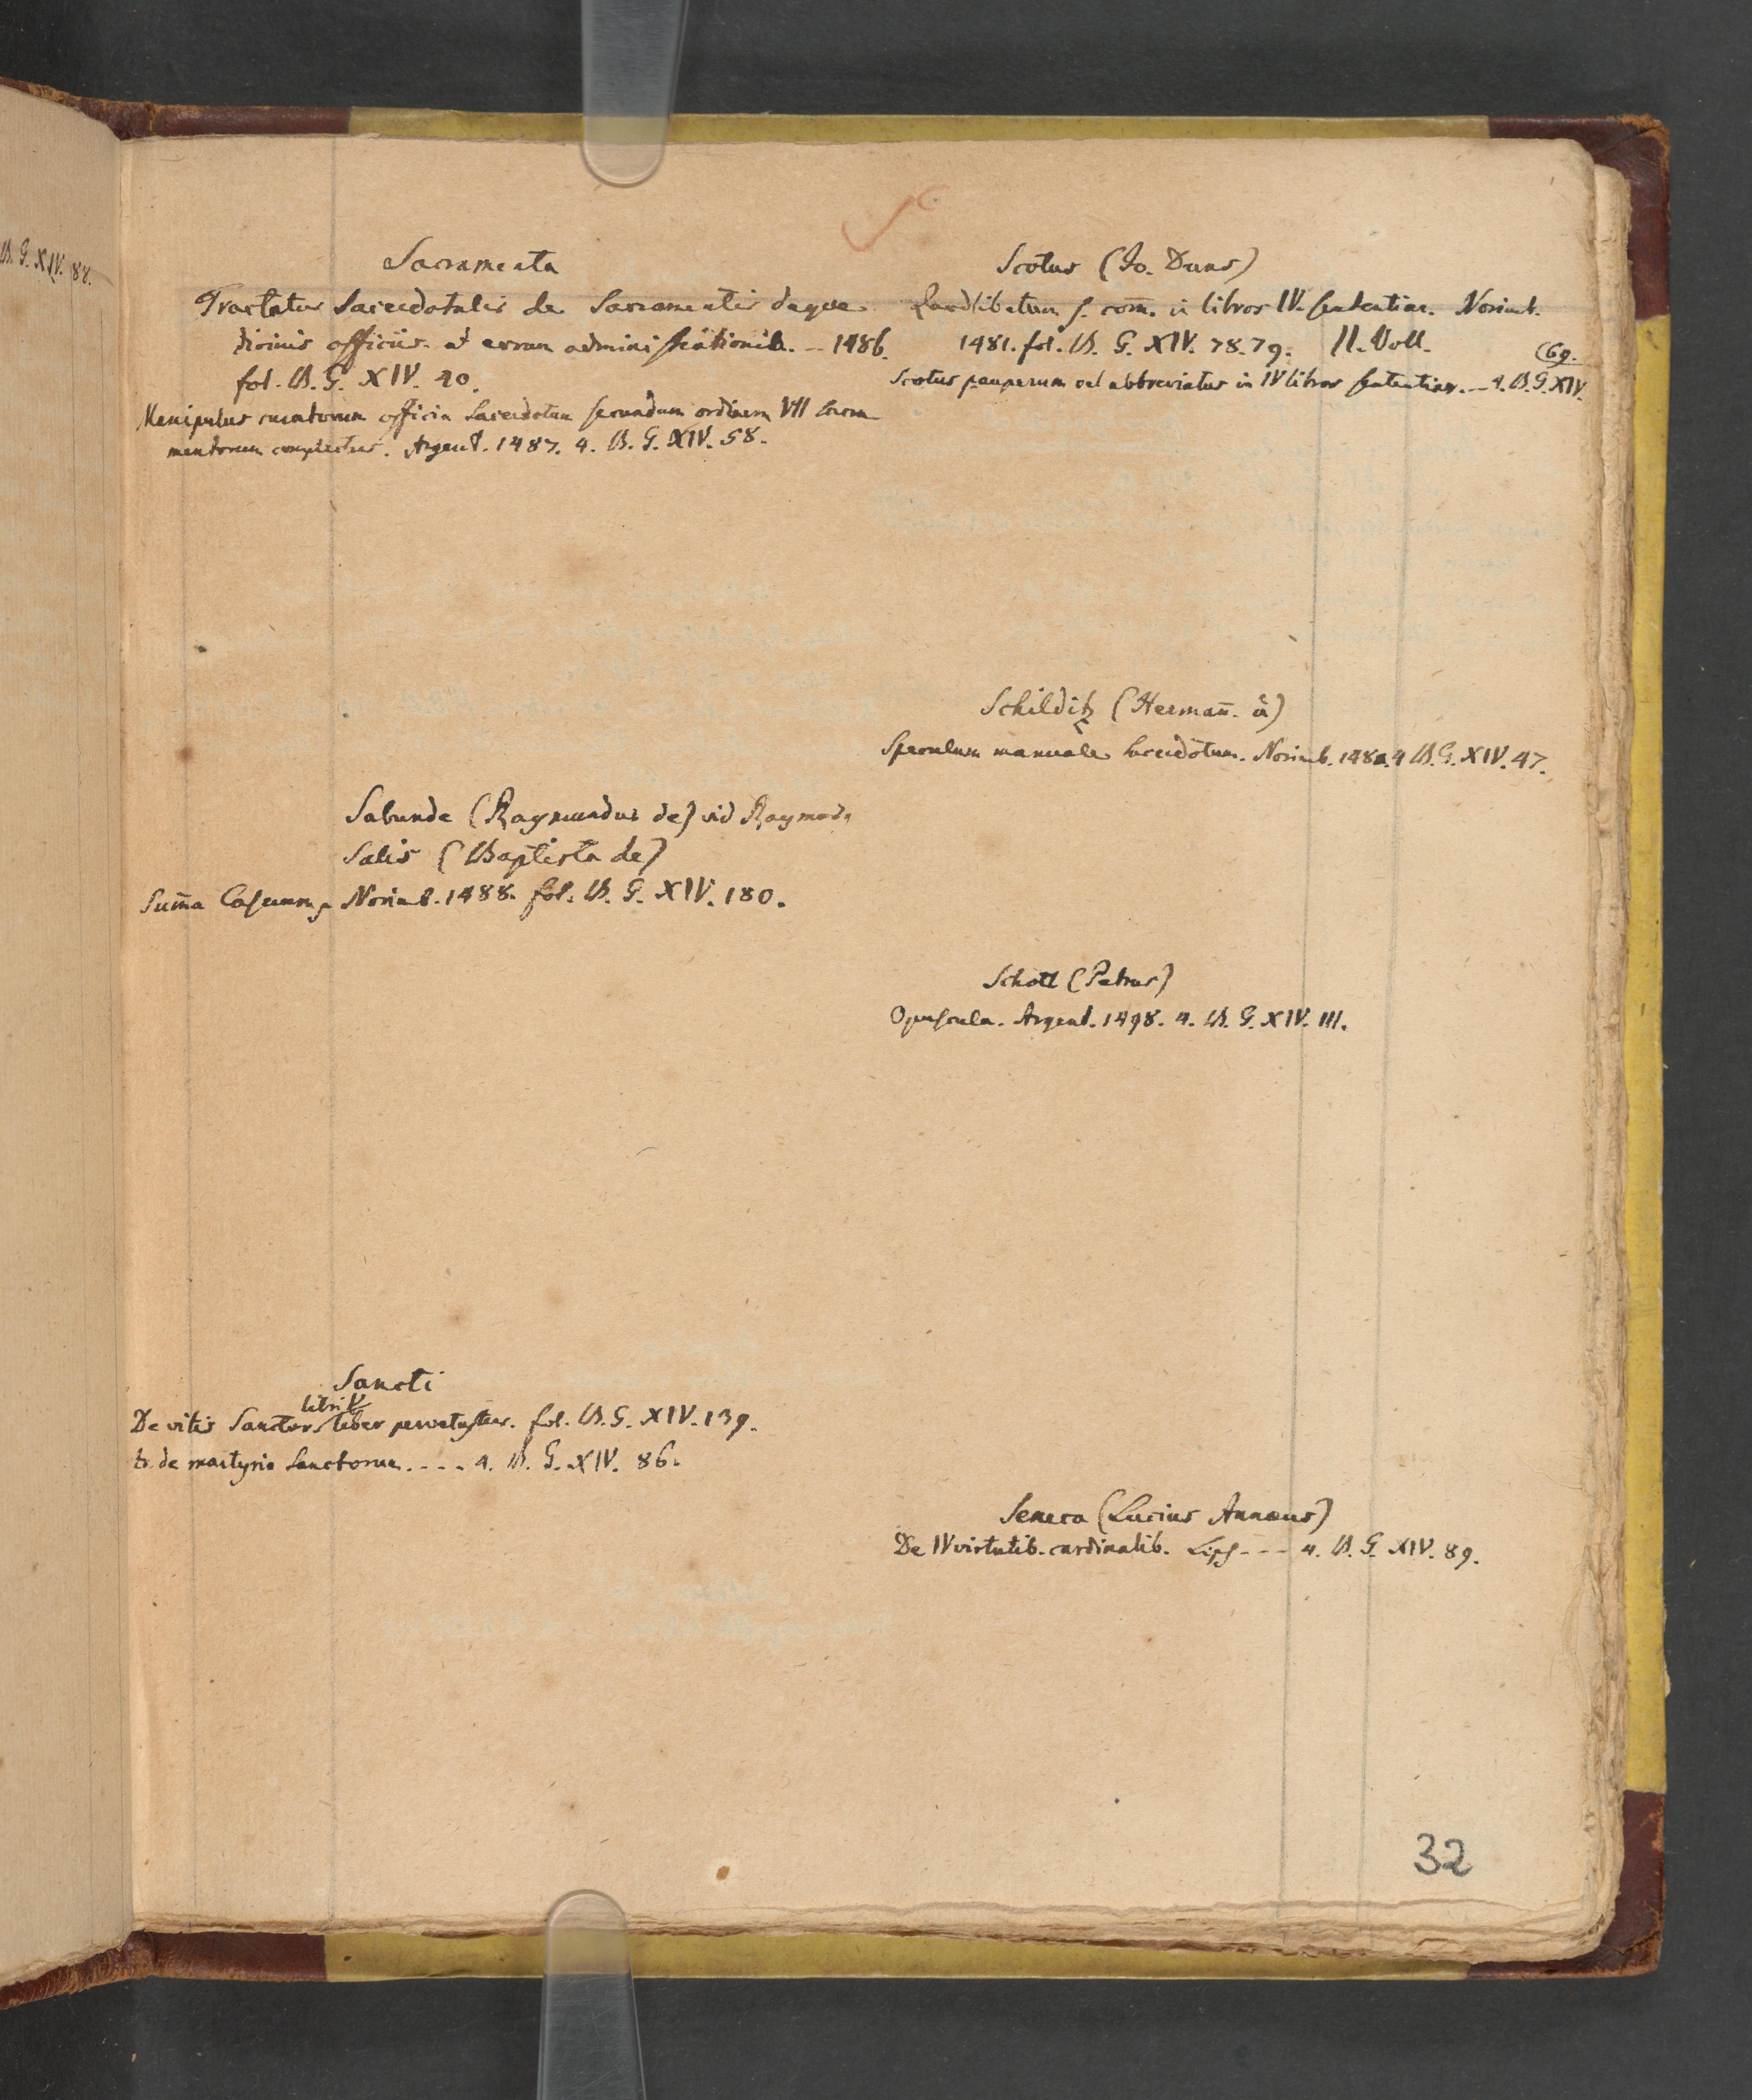 B. G. XIV. 88.
S
Sacramenta
Tractatus Sacerdotalis de Sacramentis deque
divinis officiis. et eorum administrationib. -- 1486.
fol. B. G. XIV. 40.
Manipulus curatorum officia Sacerdotum secundum ordinem VII Sacra
mentorum complectens. Argent. 1487. 4. B. G. XIV. 58.
Sabunde (Raymundus de) vid Raymund
Salis (Baptista de)
Sum̄a Casuum Norimb. 1488. fol. B. G. XIV. 180.
Sancti
libri V
De vitis Sanctor. liber pervetustus. fol. B. G. XIV. 139.
de martyrio Sanctorum. - - - 4. B. G. XIV. 86.
Scotus (Jo. Duns)
Quodlibetum s. com̄. in libros IV. sententiar. Norimb.
1481. fol. B. G. XIV. 78.79. II. Voll.
(69.
Scotus pauperum vel abbreviatus in IV libros sententiar. -- 4. B. G. XIV.
Schilditz (Herman̄. à)
Speculum manuale sacerdotum. Norimb. 4 B. G. XIV. 47.
Schott (Petrus)
Opuscula. Argent. 1498. 4. B. G. XIV. 111.
Seneca (Lucius Annaeus)
De IV virtutib. cardinalib. Lips - - - 4. B. G. XIV. 89.
32